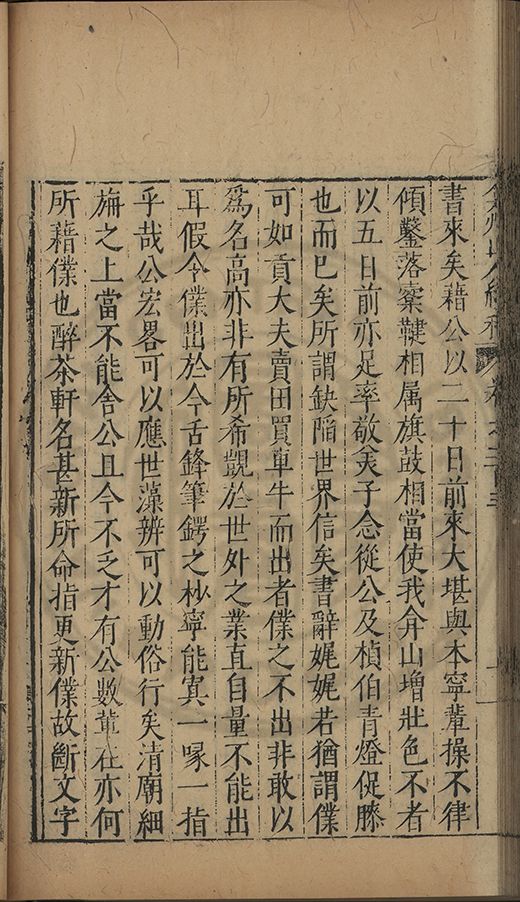 書來矣藉公以二十日前來大堪與本寧輩操不律
傾鑿落櫜鞬相属旗鼓相當使我弇山增壯色不者
以五日前亦足率敬美子念從公及楨伯青燈促膝
也而已矣所謂缺陷世界信矣書辭娓娓若猶謂僕
可如貢大夫賣田買車牛而出者僕之不出非敢以
爲名高亦非有所希覬於世外之業直自量不能出
耳假令僕出於今舌鋒筆鍔之杪寧能寘一喙一指
乎哉公宏畧可以應世藻辨可以動俗行矣清廟細
旃之上當不能舍公且今不乏才有公數輩在亦何
所藉僕也醉茶軒名甚新所命指更新僕故斷文字